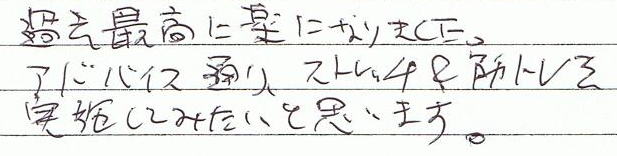 過去最高に楽になりました。
アドバイス通り、ストレッチと筋トレを
実施してみたいと思います。